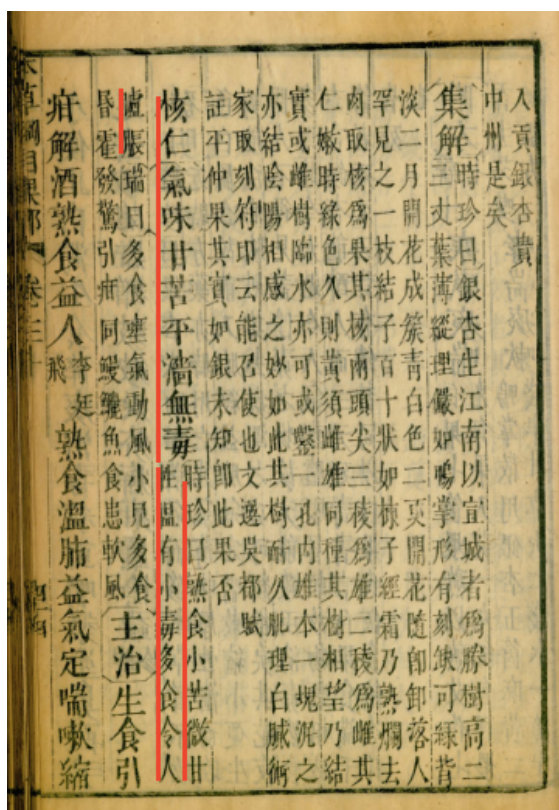 入貢銀杏貴
中州是矣
集解時珍曰銀杏生江南以宣城者爲勝樹高二
三丈葉薄縱理儼如鴨掌形有刻缺面綠背
淡二月開花成簇青白色二更開花隨即卸落人
罕見之一枝結子百十狀如楝子經霜乃熟爛去
肉取核爲果其核兩頭尖三稜爲雄二稜爲雌其
仁嫩時綠色久則黃須雌雄同種其樹相望乃結
實或雌樹臨水亦可或鑿一孔内雄木一塊泥之
亦結陰陽相感之妙如此其樹耐久肌理白膩術
家取刻符印云能召使也文選吳都賦
註平仲果其實如銀未知即此果否
核仁氣味甘苦平濇無毒時珍曰熟食小苦微甘
性溫有小毒多食令人
臚脹瑞曰多食壅氣動風小兒多食
昏霍發驚引疳同鰻鱺魚食患軟風主治生食引
疳解酒熟食益人李廷飛熟食溫肺益氣定喘嗽縮
本草綱目果部 卷之三十